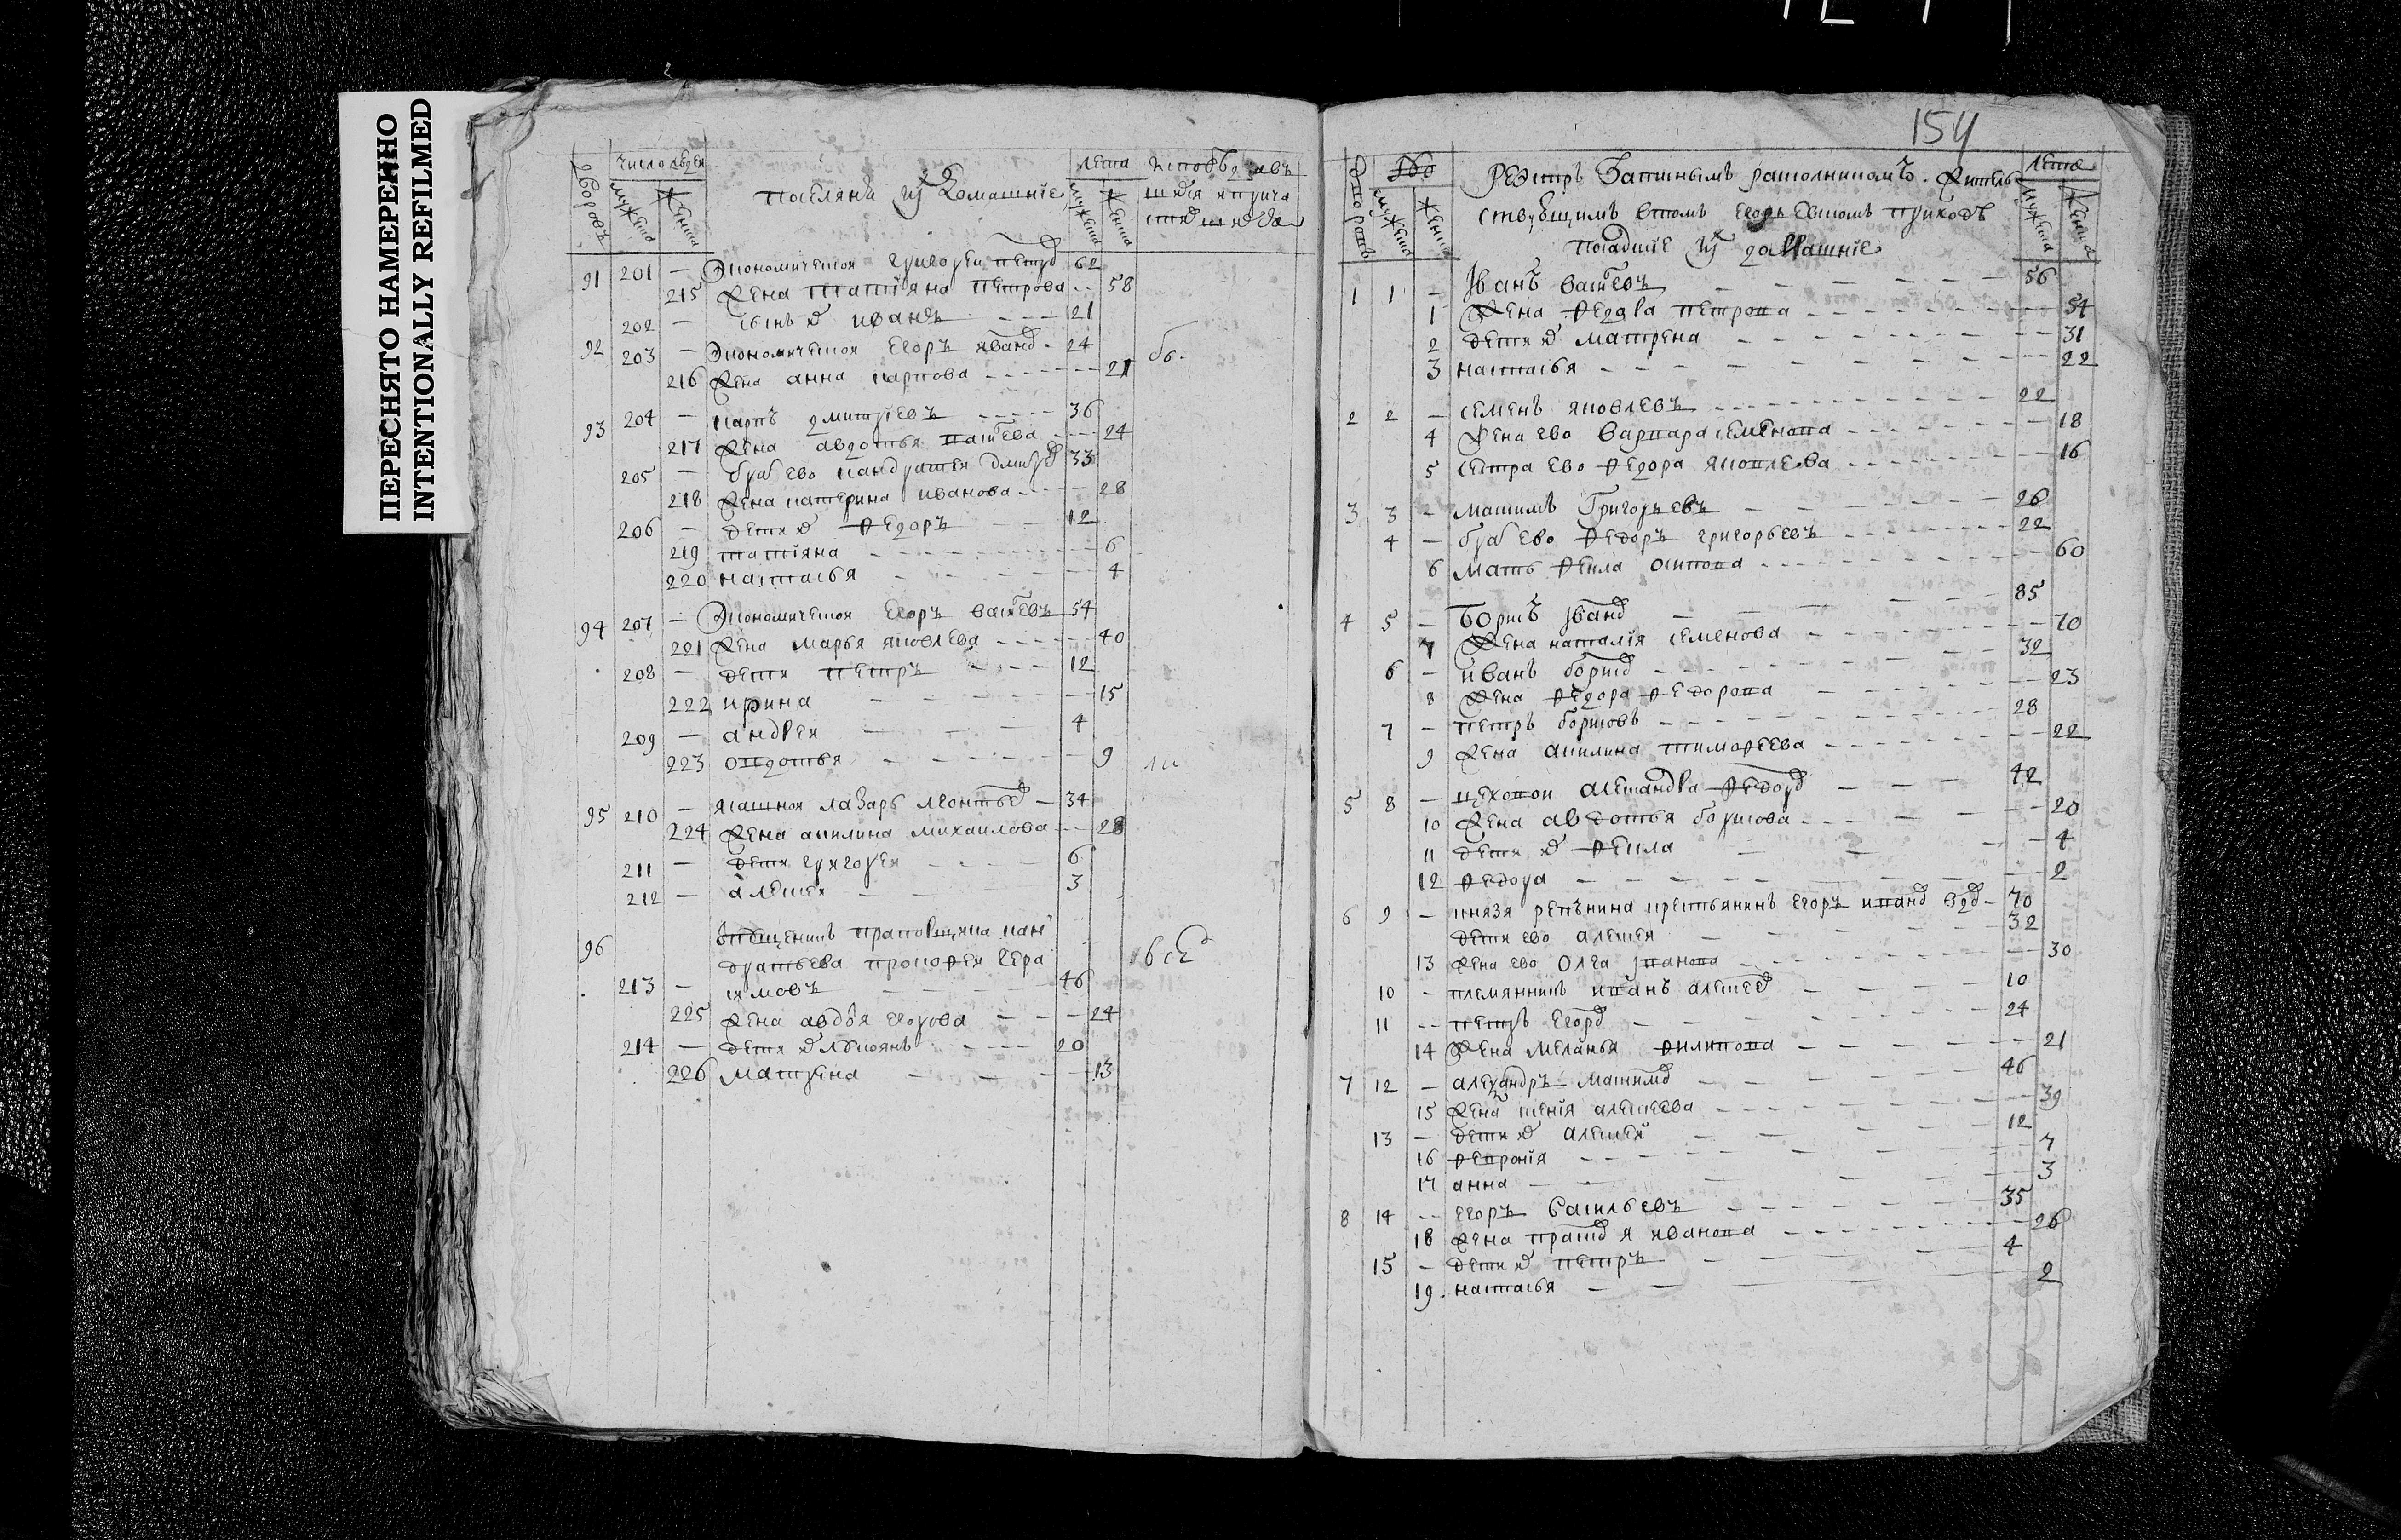 ПЕРЕСНЯТО НАМЕРЕННО
INTENTIONALLY REFILMED
дворовъ
число людей
мужеска
женска
посадские и их домашние
лета
мужеска
женска
91 201 — Экономическои григореи петров 62
215 жена татияна петрова 58
202 — сынъ их иванъ 21
92 203 — Экономическои егоръ иванов 24
216 жена анна карпова 21
93 204 — карпъ дмитриевъ 36
217 жена авдотья 24
205 — брат ево кандратеи дмитр 33
218 жена катерина иванова 28
206 — дети их федоръ 12
219 татияна 6
220 настасья 4
94 207 — Экономическои егоръ васílевъ 54
221 жена марья яковлева 40
208 — дети петръ 12
222 ирина 15
209 — андреи 4
223 овдотья 9
95 210 — ясашнои лазарь леонтьев 34
224 жена акилина михаилова 28
211 — дети григореи 6
212 — алексеи 3
96 прапорщика кан
дратьева прокофеи гера
213 — симовъ 46
225 жена авдоя егорова 24
214 — дети их лукоянъ 20
226 матрена 13
154
Реэстръ записнымъ раскольникомъ жительс
ствующимъ втомъ егорьевскомъ приходѣ
посадские и их домашние
лета
мужеска
женска
1 1 — Іванъ васílевъ 56
1 жена федосья петрова 54
2 дети их матрена 31
3 настасья 22
2 2 — семенъ яковлевъ 22
4 жена ево варвара семенова 18
5 сестра ево федора яковлева 16
3 3 — максимъ Григорьевъ 26
4 — брат ево федоръ григорьевъ 22
6 мать фекла осипова 60
4 5 — Борисъ Іванов 85
7 жена наталия семенова 70
6 — иванъ борисов 32
8 жена федора федорова 23
7 — петръ борисовъ 28
9 жена акилина тимофеева 22
5 8 — цеховои александра федоров 42
10 жена авдотья борисова 20
11 дети их фекла 4
12 федора 2
6 9 — князя репънина крестьянинъ егоръ иванов вдов 70
дети ево алексеи 32
13 жена ево олга Іванова 30
10 — племянникъ иванъ алексеев 10
11 — петръ егоров 24
14 жена меланья филипова 21
7 12 — александръ максимов 46
15 жена ксения алексеева 39
13 — дети их алексеи 12
16 феврония 7
17 анна 3
8 14 — егоръ васильевъ 35
18 жена прасковя иванова 26
15 — дети их петръ 4
19 настасья 2